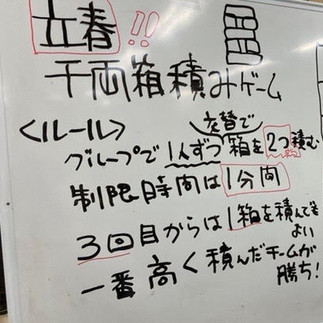 立春!!
千両箱積みゲーム
<ルール>
交替で
グループで1人ずつ箱を2つ積む
制限時間は1分間
3回目からは1箱を積んでも
よい
一番高く積んだチームが
勝ち!